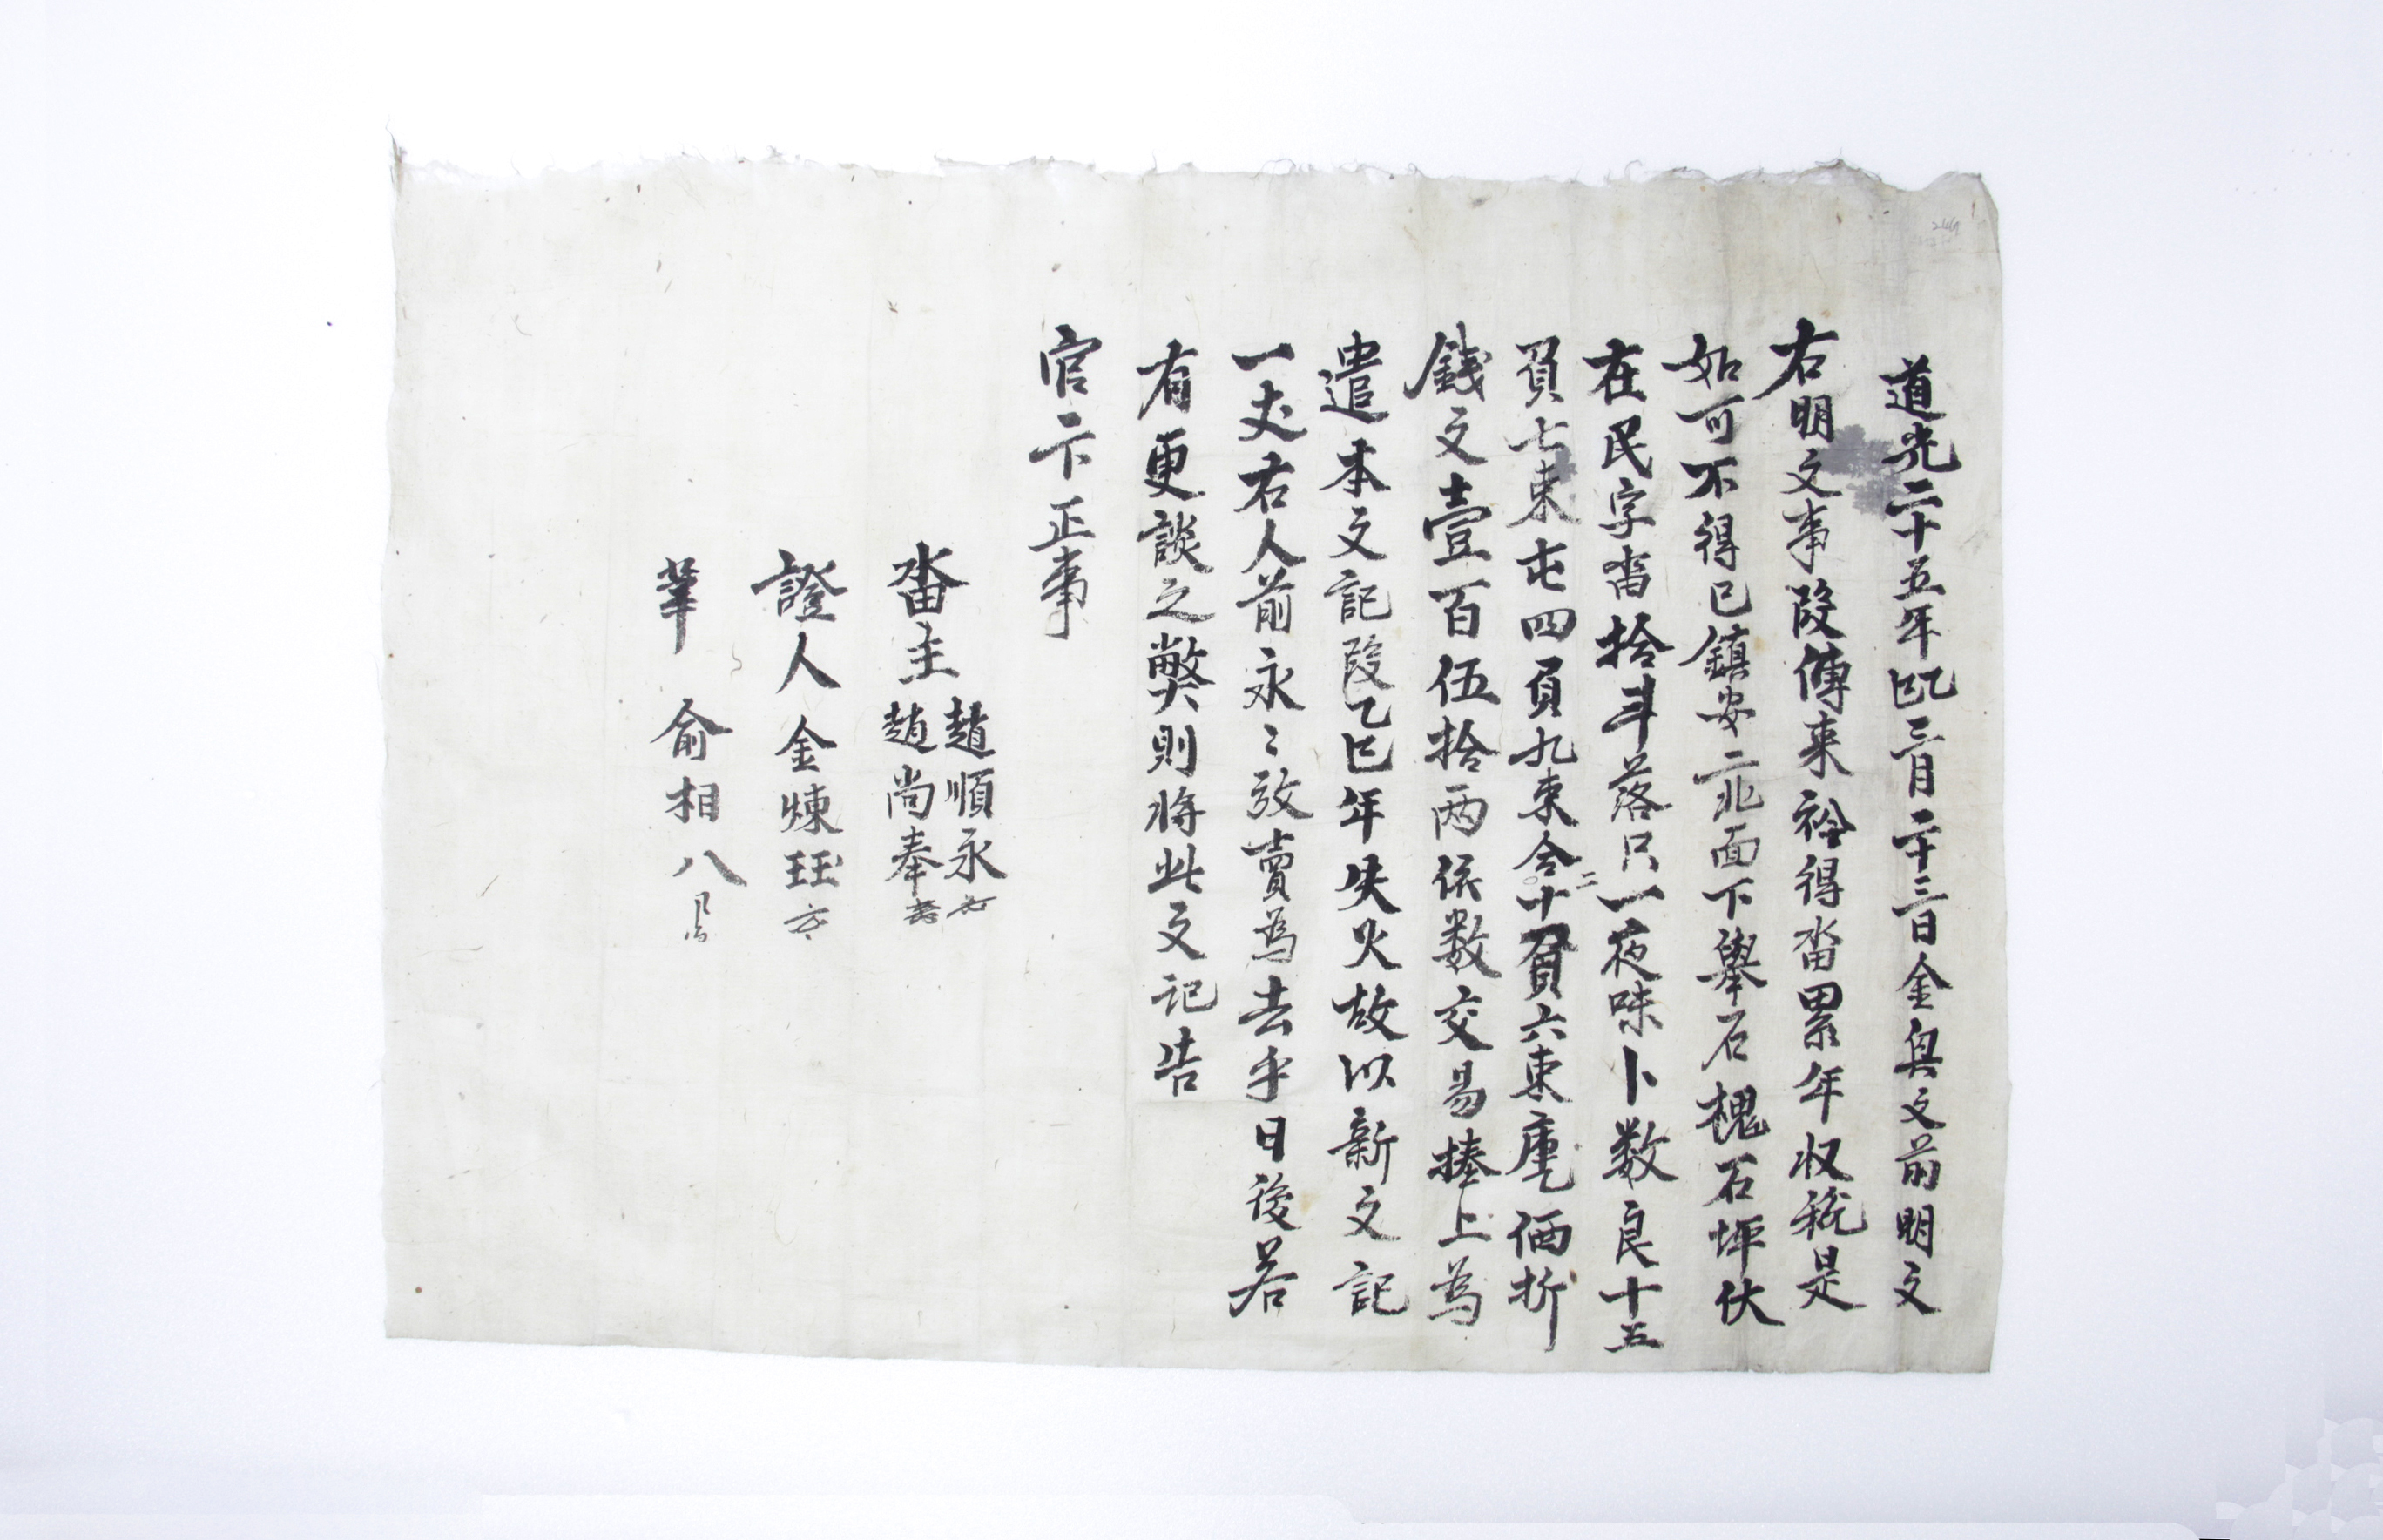 道光二十五年乙巳三月二十三日金奐文前明文
右明文事段傳来衿得畓累年収稅是
如可不得已鎮安二北面下擧石槐石坪伏
在民字畓拾斗落只一夜味卜数良十五
負七束屯四負九束合十二負六束庫価折
錢文壹百伍拾両依数交易捧上為
遣本文記段乙巳年失火故以新文記
一丈右人前永〻放賣為去乎日後若
有更談之弊則将此文記告
官卞正事
畓主 趙順永
趙尚奉
證人 金煉珏
筆 俞相八